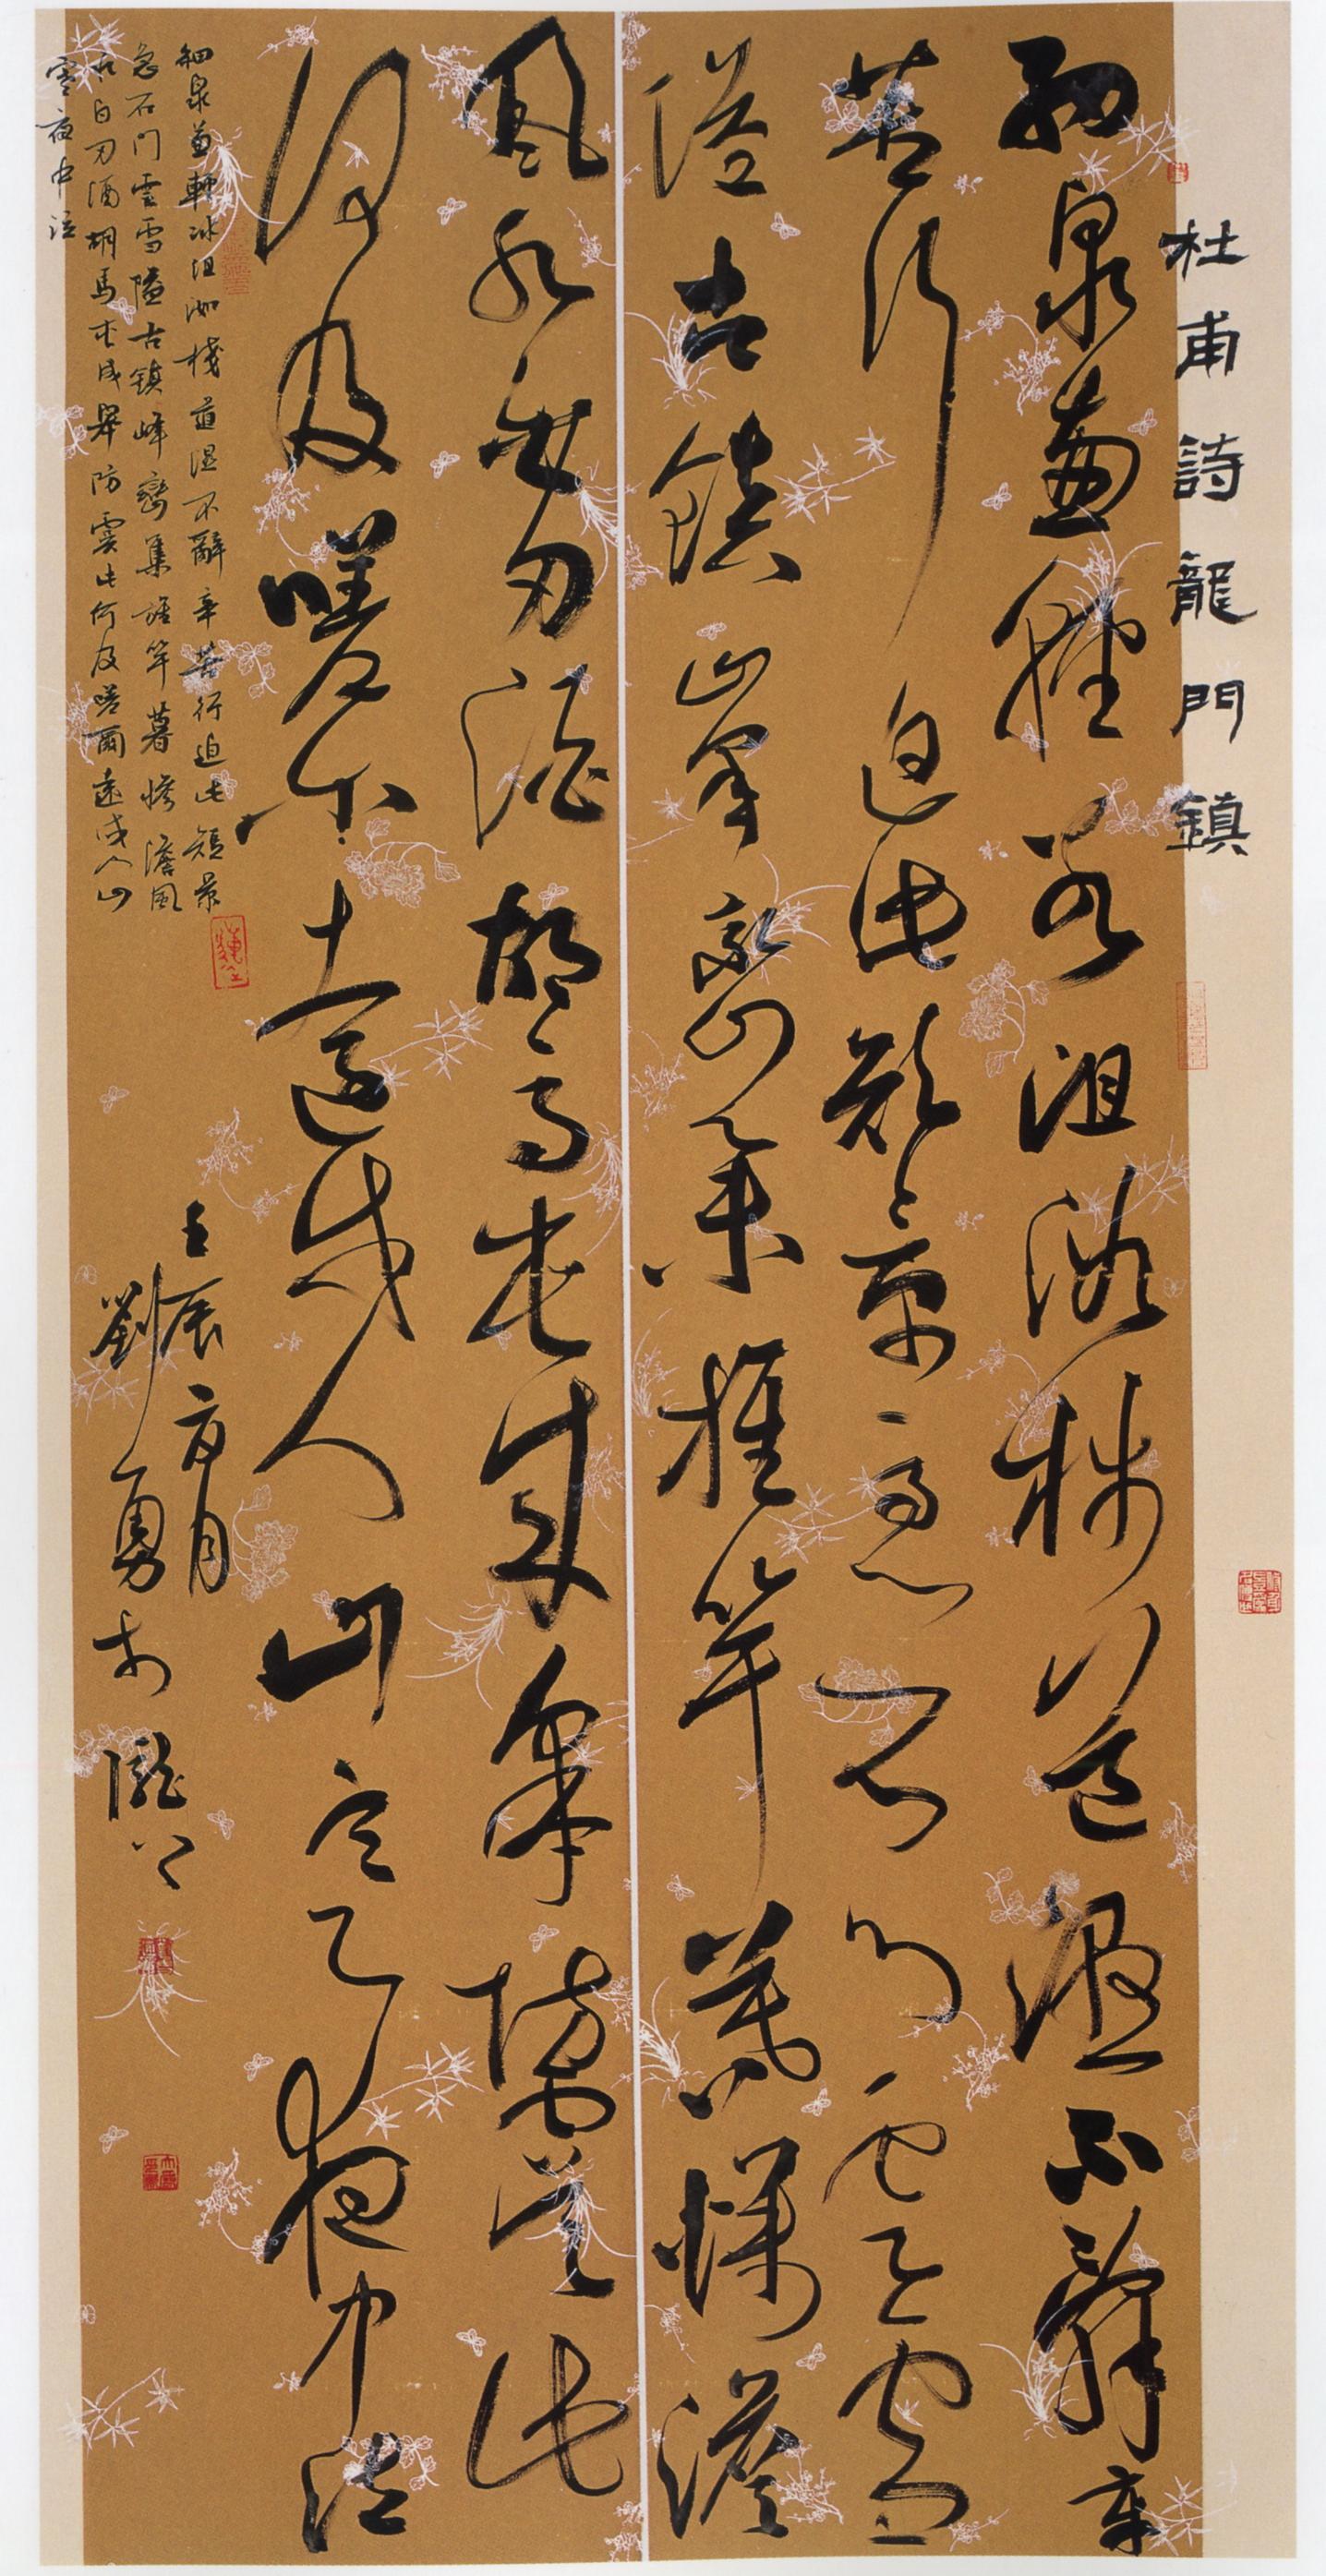 杜甫詩龍門鎮
細泉兼輕冰沮洳棧道濕不辭辛
苦行迫此短景急石門雲雪
隘古鎮峰巒集旌竿暮慘澹
風水白刃澀胡馬屯成皋防虞此
何及嗟爾遠戍人山寒夜中泣
細泉兼輕冰沮洳棧道濕不辭辛苦行迫此短景
急石門雲雪隘古鎮峰巒集旌竿暮慘澹風
水白刃澀胡馬屯成皋防虞此何及嗟爾遠戍人山
寒夜中泣
壬辰夏月
劉勇於隴上